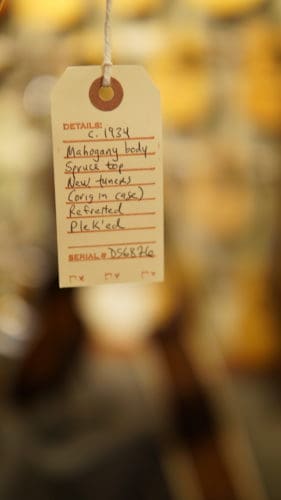 DETAILS:
c. 1934
Mahogany body
Spruce top
New tuners
(orig in case)
Refretted
Plek'ed
SERIAL # DS6876